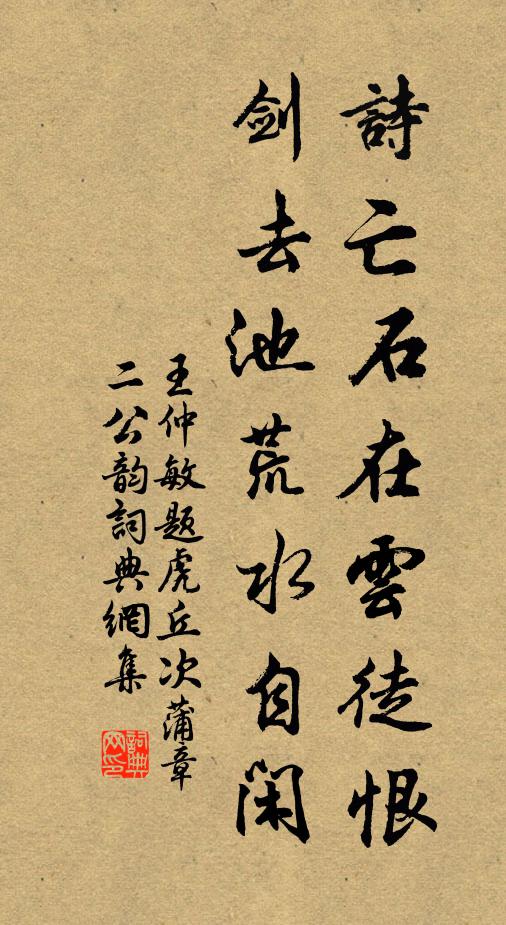 詩亡石在雲徒恨
剑去池荒水自閑
王仲敏题虎丘次蒲章
二公韵詞典網集
詞典
网印